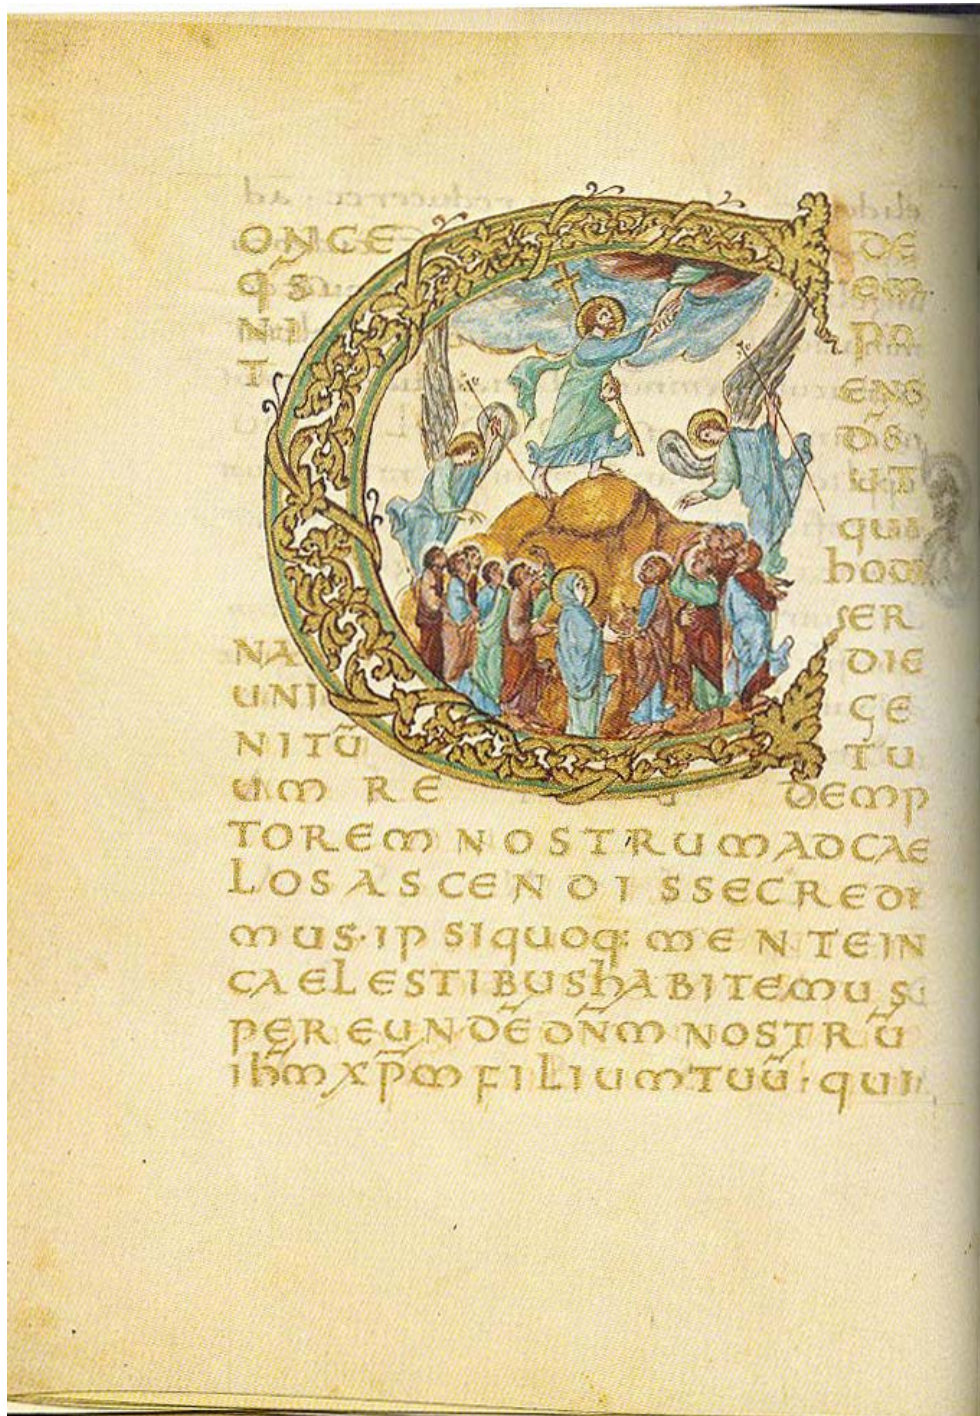 CONCE DE
qS om
NI PO
T ENS
D̄S
UT
qui
hodi
ER
NA DIE
UNI GE
NITŪ TU
Um RE DEmP
TOREm NOSTRUm AD CAE
LOS ASCENDISSE CREDI
mUS· IPSI quoq: mENTE IN
CAELESTIBUS hABITEmUS
PER EUNDĒ DN̄m NOSTRŪ
ih̄m XP̄m FILIUm TUŪ· qui